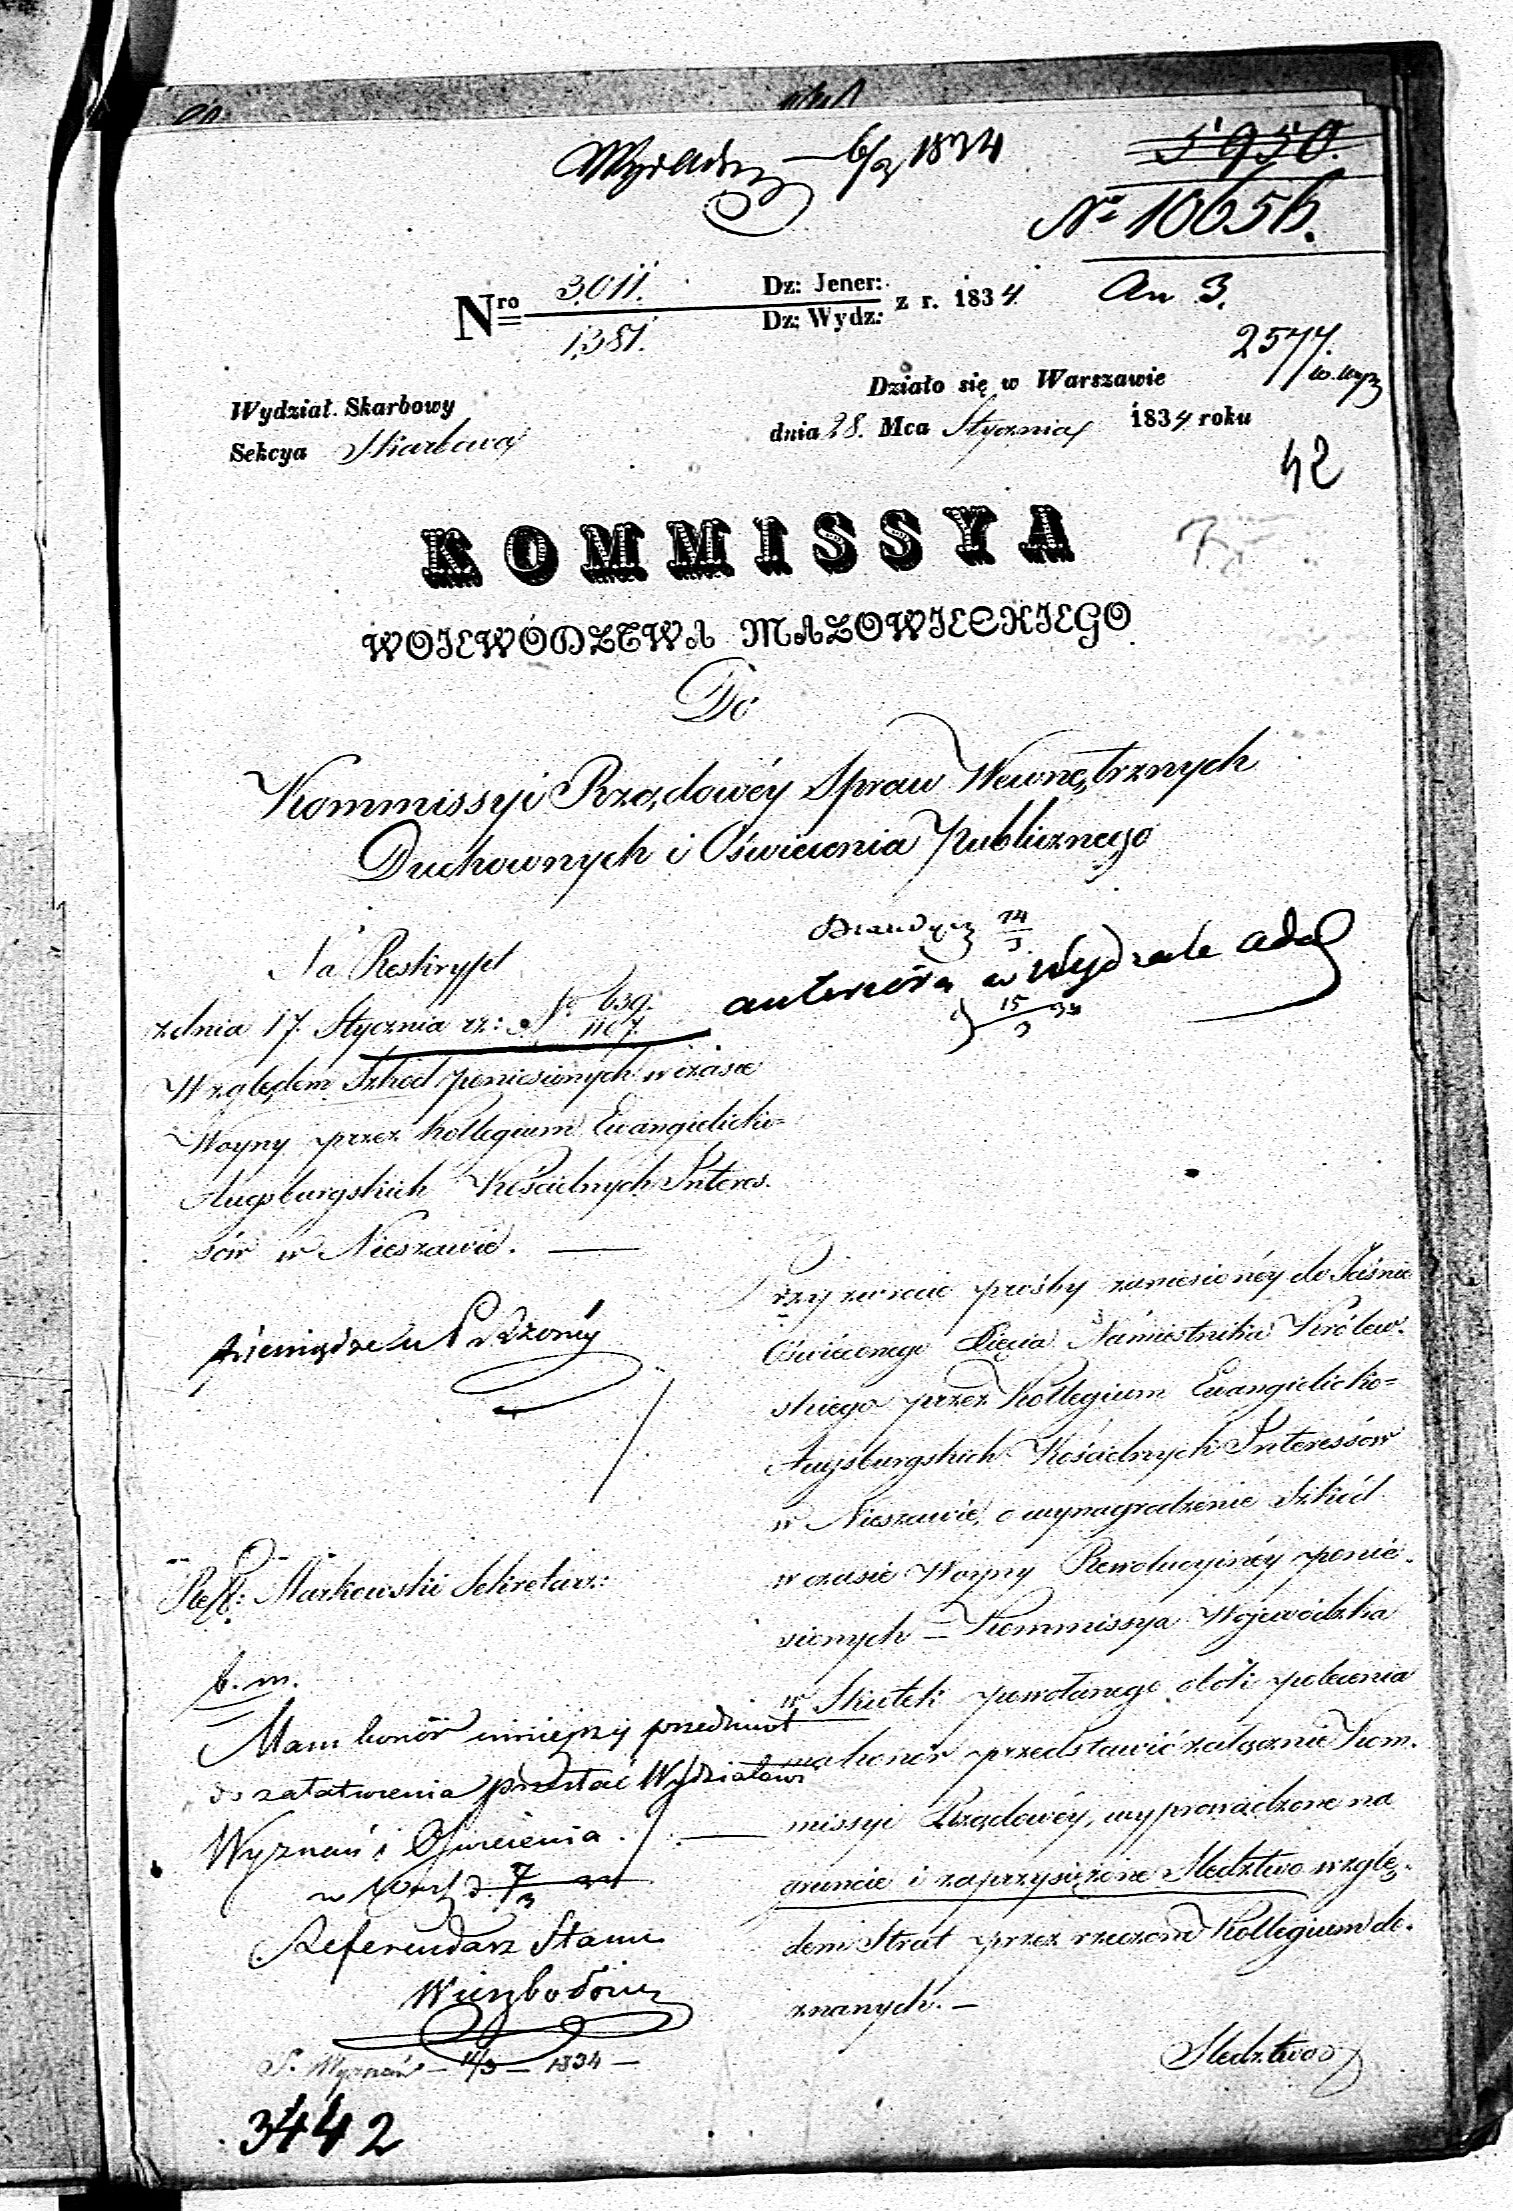 6/3 1834
5950.
No 10656.
Nro 3011. Dz: Jener: z r. 1834
1381. Dz: Wydz:
An 3.
2577.
w. wyz
Działo się w Warszawie
Wydział Skarbowy
dnia 28. Mca Stycznia 1834 roku
Sekcya Skarbowa
42
KOMMISSYA
WOJEWÓDZTWA MAZOWIECKIEGO
Do
Kommissyi Rządowéy Spraw Wewnętrznych
Duchownych i Oświecenia Publicznego
Na Reskrypt
z dnia 17. Stycznia rz: No 639./1107.
Względem Szkód poniesionych w czasie
Woyny przez Kollegium Ewangielicko=
Augsburgskich Kościelnych Interes.
sów w Nieszawie. —
14/3
anteriora w Wydziale
15/3 34
Przy zwrocie prośby zaniesionéy do Jaśnie
Oświeconego Xięcia Namiestnika Królew.
skiego przez Kollegium Ewangielicko=
Augsburgskich Kościelnych Interessów
w Nieszawie, o wynagrodzenie Szkód
w czasie Woyny Rewolucyinéy ponie.
sionych — Kommissya Wojewódzka
w Skutek powołanego obok polecenia
ma honor przedstawić załącznie Kom.
missyi Rządowéy, wyprowadzone na
gruncie i zaprzysiężone Sledztwo wzglę.
dem Strat przez rzeczone Kollegium do.
znanych. —
Sledztwo
pieniądze u
Ref: Markowski Sekretarz:
b. m.
Mam honor ninieyszy przedmiot
do załatwienia przesłać Wydziałowi
Wyznań i Oświecenia. —
7/3
Referendarz Stanu
S. Wyznań — 11/3 — 1834 —
3442